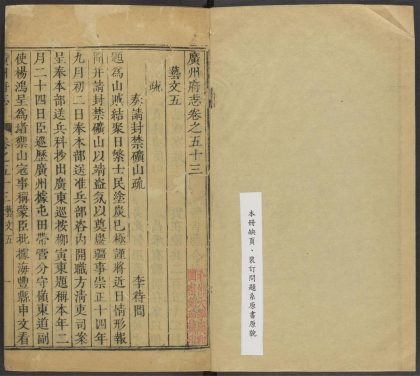 廣州府志卷之五十三
藝文五
疏
奏請封禁礦山疏
李待問
題為山賊結聚日繁士民塗炭已極謹將近日情形報
聞并請封禁礦山以靖盜氛以奠巖疆事崇正十四年
九月初二日奉本部送准兵部咨内開職方清吏司案
呈奉本部送兵科抄出廣東巡按柳寅東題稱本年二
月二十四日臣巡歷廣州據屯田帶管分守嶺東道副
使楊鴻呈為堵禦山寇事稱蒙臣批據海豐縣申文看
廣州府志
卷之五十三
藝文五
一
本冊缺頁、裝訂問題系原書原貌